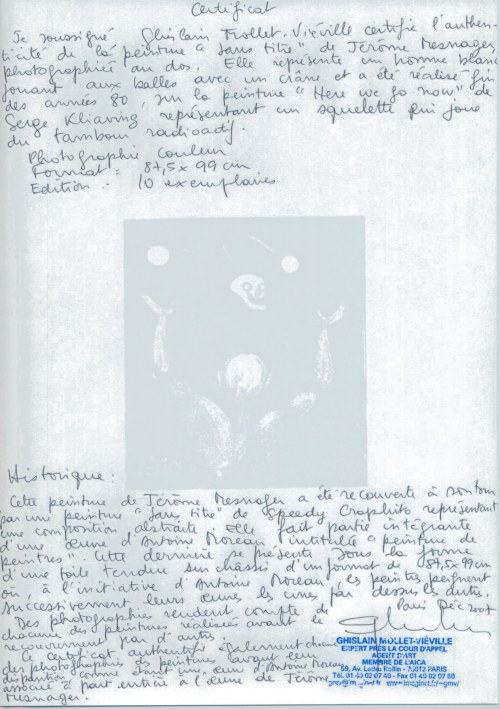 Certificat
Je soussigné Ghislain Mollet-Viéville certifie l'authen-
ticité de la peinture "sans titre" de Jérôme Mesnager
photographiée au dos. Elle représente un homme blanc
jouant aux balles avec un crâne et a été réalisé fin
des années 80, sur la peinture "Here we go now" de
Serge Kliaving représentant un squelette qui joue
du tambour radioactif.
Photographie couleur
Format : 87,5 x 99 cm
Edition : 10 exemplaires
Historique :
Cette peinture de Jérôme Mesnager a été recouverte à son tour
par une peinture "sans titre" de Speedy Graphito représentant
une composition abstraite. Elle fait partie intégrante
d'une œuvre d'Antoine Moreau intitulée "peinture de
peintres". Cette dernière se présente sous la forme
d'une toile tendue sur chassi d'un format de 87,5 x 99 cm
où, à l'initiative d'Antoine Moreau, les peintres peignent
successivement leurs œuvres les unes par dessus les autres.
Des photographies rendent compte de
chacune des peintures réalisées avant le
recouvrement par d'autres.
Paris Déc 2007
Ce certificat authentifie également chacune
des photographies des peintures avant leur
disparition comme étant une œuvre d'Antoine Moreau
associée à part entière à l'œuvre de Jérôme
Mesnager.
GHISLAIN MOLLET-VIÉVILLE
EXPERT PRÈS LA COUR D'APPEL
AGENT D'ART
MEMBRE DE L'AICA
59, Av. Ledru Rollin - 75012 PARIS
Tél. 01 40 02 07 40 - Fax 01 40 02 07 50